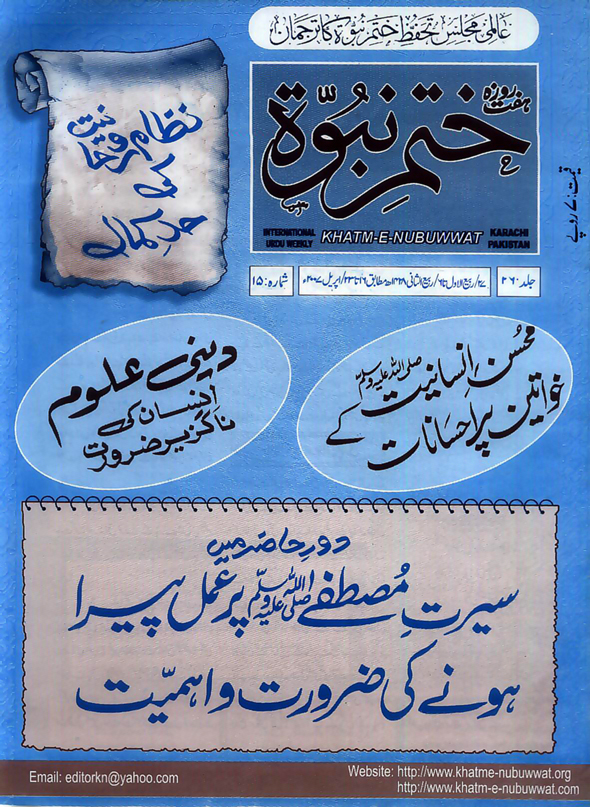 عالمی مجلس تحفظ ختم نبوۃ کا ترجمان
ہفت روزہ
ختم نبوۃ
INTERNATIONAL
URDU WEEKLY
KHATM-E-NUBUWWAT
KARACHI
PAKISTAN
قیمت: ۷ روپے
نظام روحانیت
کی
حد کمال
جلد: ۲۶
۲۷/ربیع الاول تا ۶/ربیع الثانی ۱۴۲۸ھ مطابق ۱۶ تا ۲۳/اپریل ۲۰۰۷ء
شمارہ: ۱۵
محسن انسانیت صلی اللہ علیہ وسلم کے
خواتین پر احسانات
دینی علوم
انسان کی
ناگزیر ضرورت
دور حاضر میں
سیرتِ مصطفےٰ صلی اللہ علیہ وسلم پر عمل پیرا
ہونے کی ضرورت و اہمیّت
Email: editorkn@yahoo.com
Website: http://www.khatme-nubuwwat.org
http://www.khatm-e-nubuwwat.com